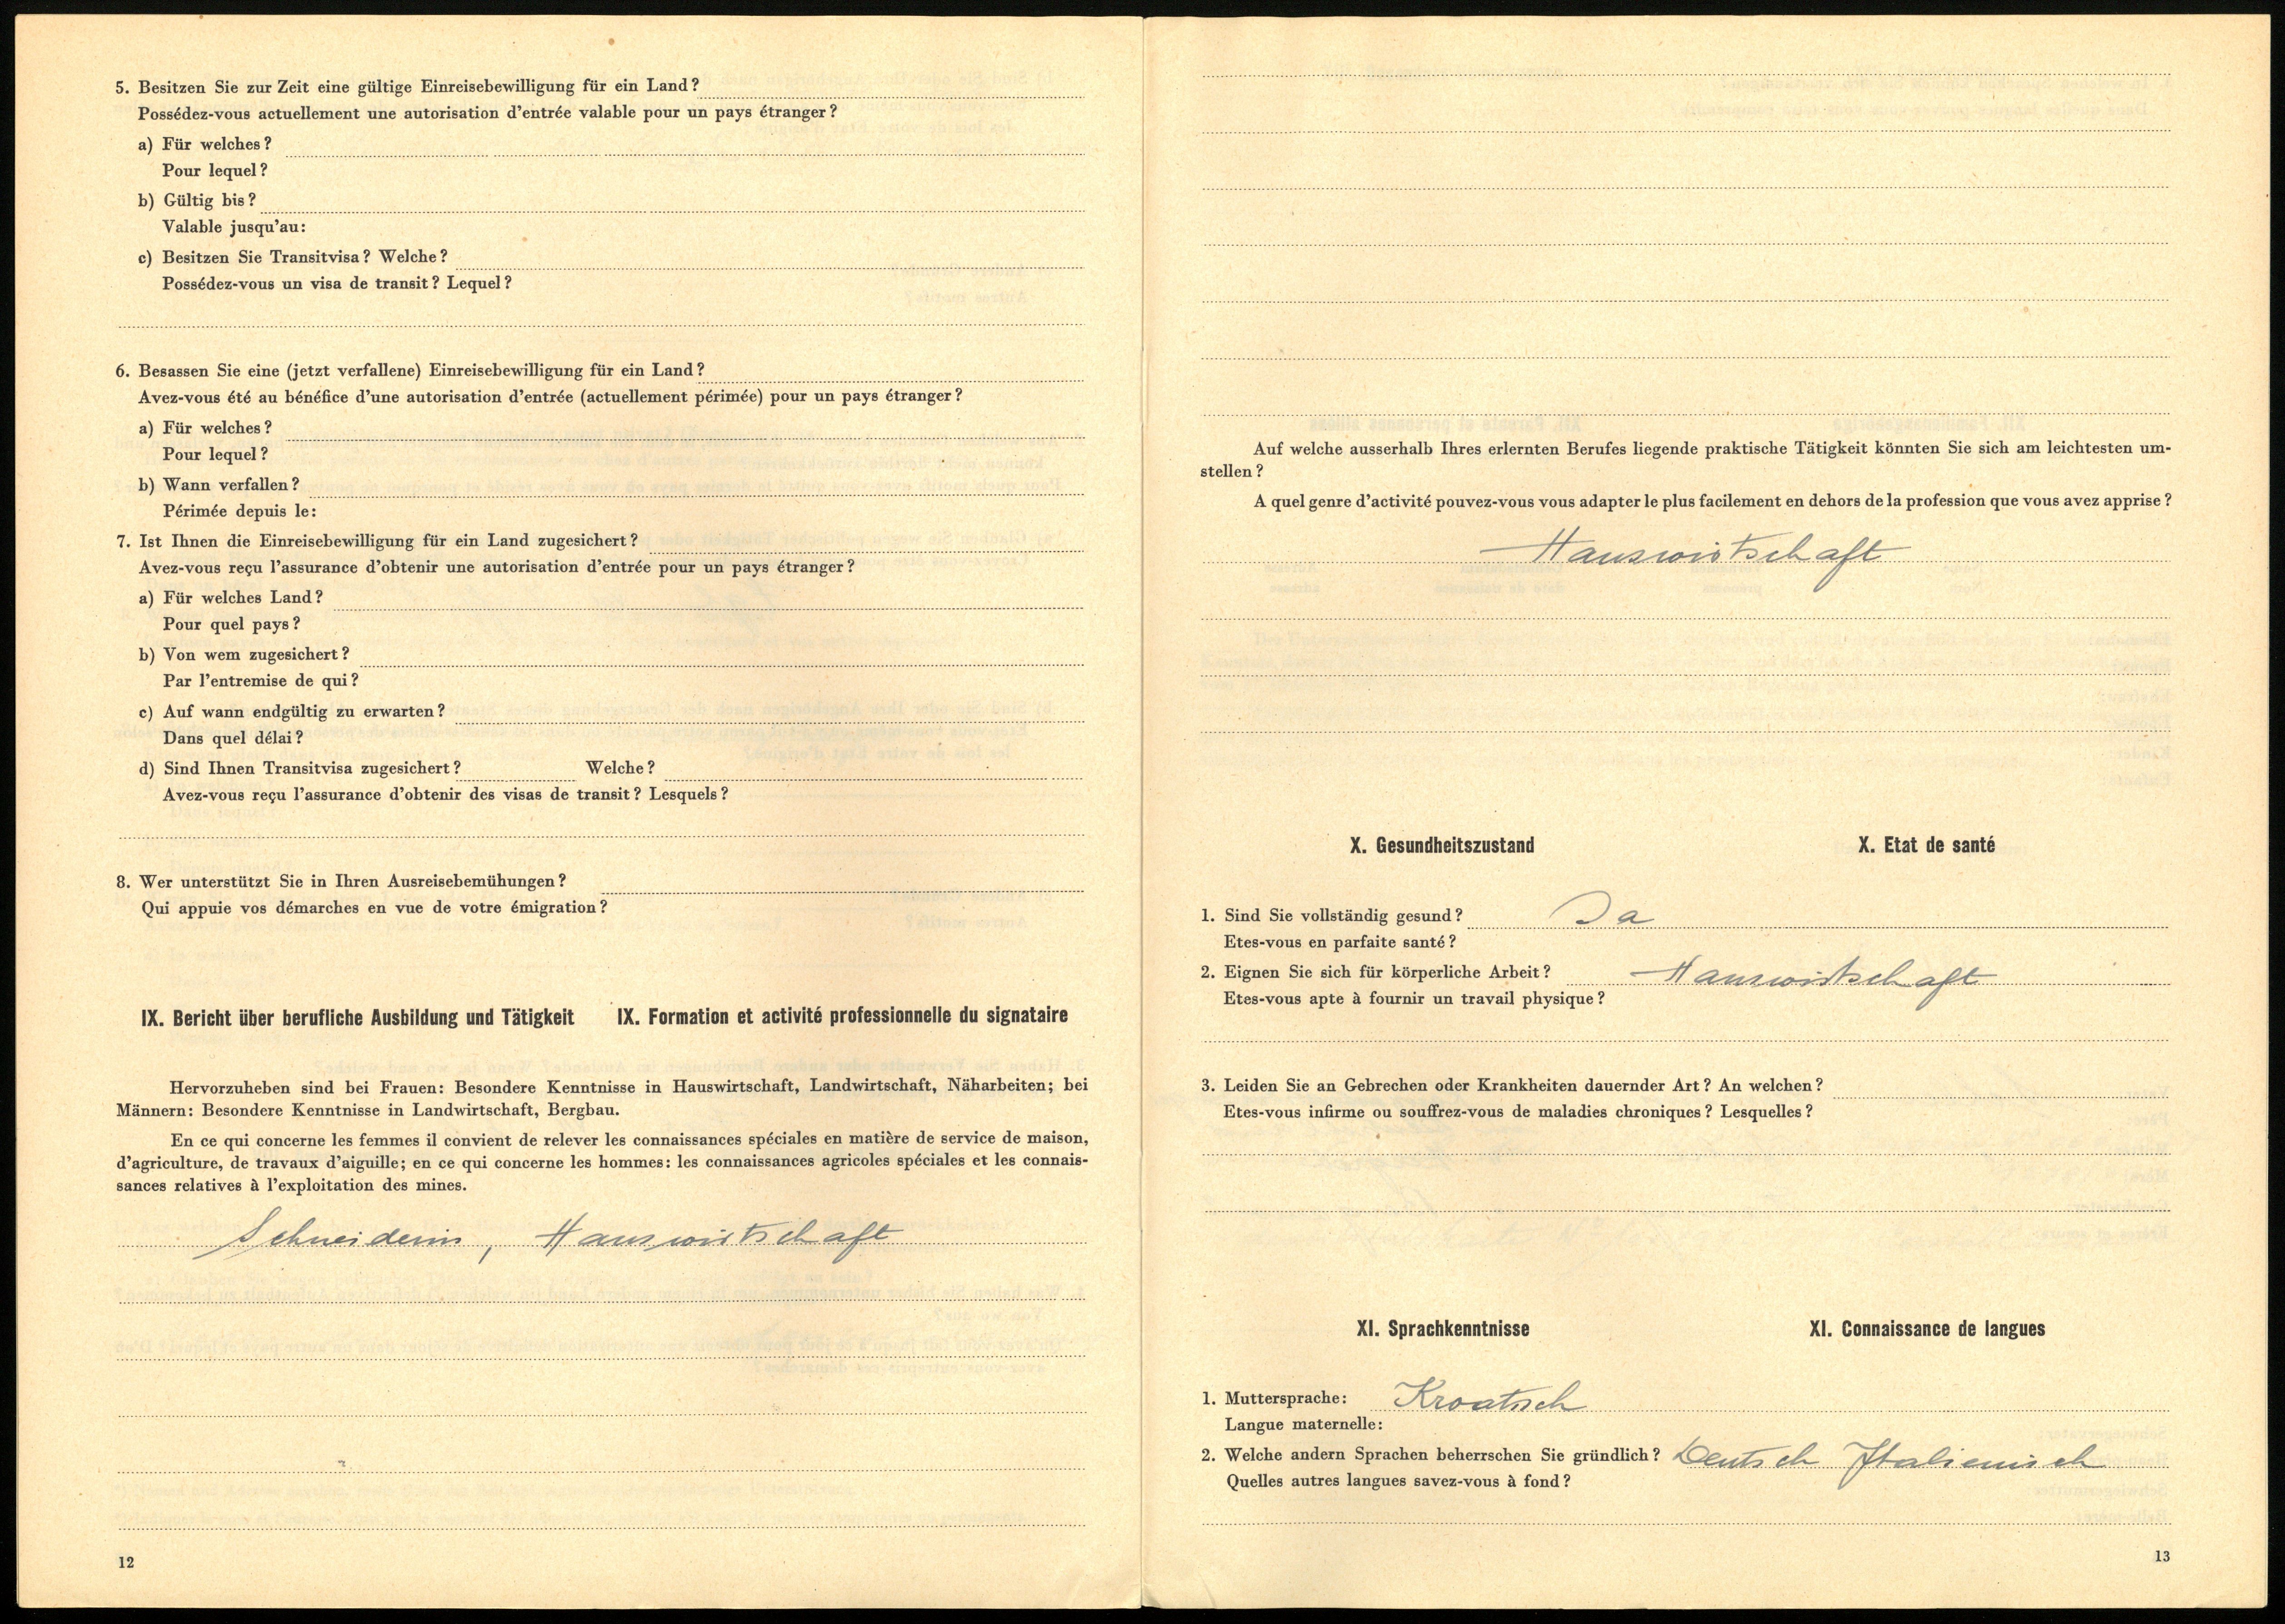 5. Besitzen Sie zur Zeit eine gültige Einreisebewilligung für ein Land?
Possédez-vous actuellement une autorisation d'entrée valable pour un pays étranger?
a) Für welches?
Pour lequel?
b) Gültig bis?
Valable jusqu'au:
c) Besitzen Sie Transitvisa? Welche?
Possédez-vous un visa de transit? Lequel?
6. Besassen Sie eine (jetzt verfallene) Einreisebewilligung für ein Land?
Avez-vous été au bénéfice d'une autorisation d'entrée (actuellement périmée) pour un pays étranger?
a) Für welches?
Pour lequel?
b) Wann verfallen?
Périmée depuis le:
7. Ist Ihnen die Einreisebewilligung für ein Land zugesichert?
Avez-vous reçu l'assurance d'obtenir une autorisation d'entrée pour un pays étranger?
a) Für welches Land?
Pour quel pays?
b) Von wem zugesichert?
Par l'entremise de qui?
c) Auf wann endgültig zu erwarten?
Dans quel délai?
d) Sind Ihnen Transitvisa zugesichert? Welche?
Avez-vous reçu l'assurance d'obtenir des visas de transit? Lesquels?
8. Wer unterstützt Sie in Ihren Ausreisebemühungen?
Qui appuie vos démarches en vue de votre émigration?
IX. Bericht über berufliche Ausbildung und Tätigkeit IX. Formation et activité professionnelle du signataire
Hervorzuheben sind bei Frauen: Besondere Kenntnisse in Hauswirtschaft, Landwirtschaft, Näharbeiten; bei
Männern: Besondere Kenntnisse in Landwirtschaft, Bergbau.
En ce qui concerne les femmes il convient de relever les connaissances spéciales en matière de service de maison,
d'agriculture, de travaux d'aiguille; en ce qui concerne les hommes: les connaissances agricoles spéciales et les connais-
sances relatives à l'exploitation des mines.
Schneiderin, Hauswirtschaft
12
Auf welche ausserhalb Ihres erlernten Berufes liegende praktische Tätigkeit könnten Sie sich am leichtesten um-
stellen?
A quel genre d'activité pouvez-vous vous adapter le plus facilement en dehors de la profession que vous avez apprise?
Hauswirtschaft
X. Gesundheitszustand X. Etat de santé
1. Sind Sie vollständig gesund? Ja
Etes-vous en parfaite santé?
2. Eignen Sie sich für körperliche Arbeit? Hauswirtschaft
Etes-vous apte à fournir un travail physique?
3. Leiden Sie an Gebrechen oder Krankheiten dauernder Art? An welchen?
Etes-vous infirme ou souffrez-vous de maladies chroniques? Lesquelles?
XI. Sprachkenntnisse XI. Connaissance de langues
1. Muttersprache: Kroatisch
Langue maternelle:
2. Welche andern Sprachen beherrschen Sie gründlich? Deutsch Italienisch
Quelles autres langues savez-vous à fond?
13